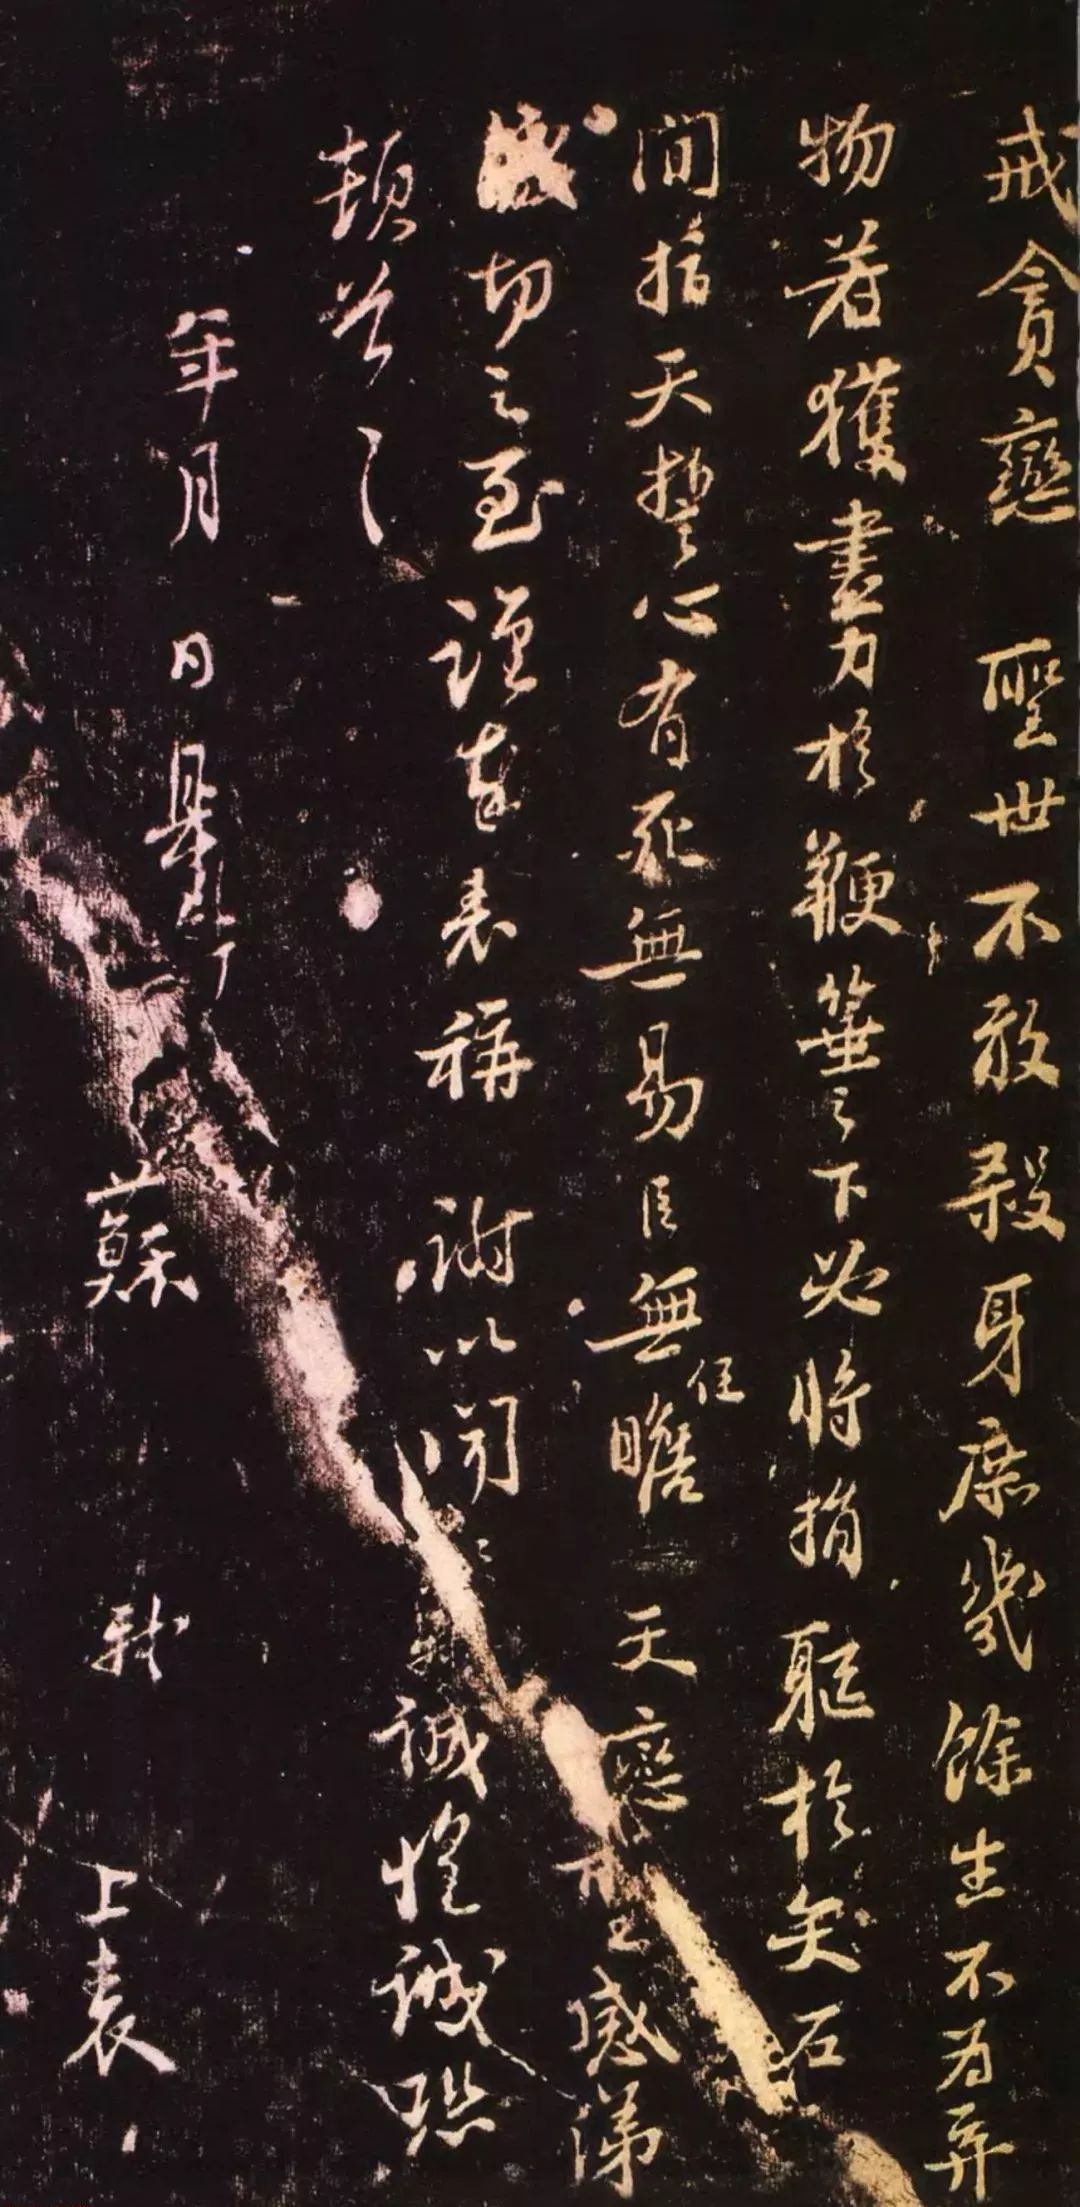 戒貪戀 聖世不敢殺身庶幾餘生不為棄
物若獲盡力於鞭箠之下必將捐軀於矢石
間指天誓心有死無易臣無任瞻 天戀聖感涕
切之至謹奉表稱 謝以聞 軾誠惶誠恐
頓首〻
年月 日
蘇 軾 上表